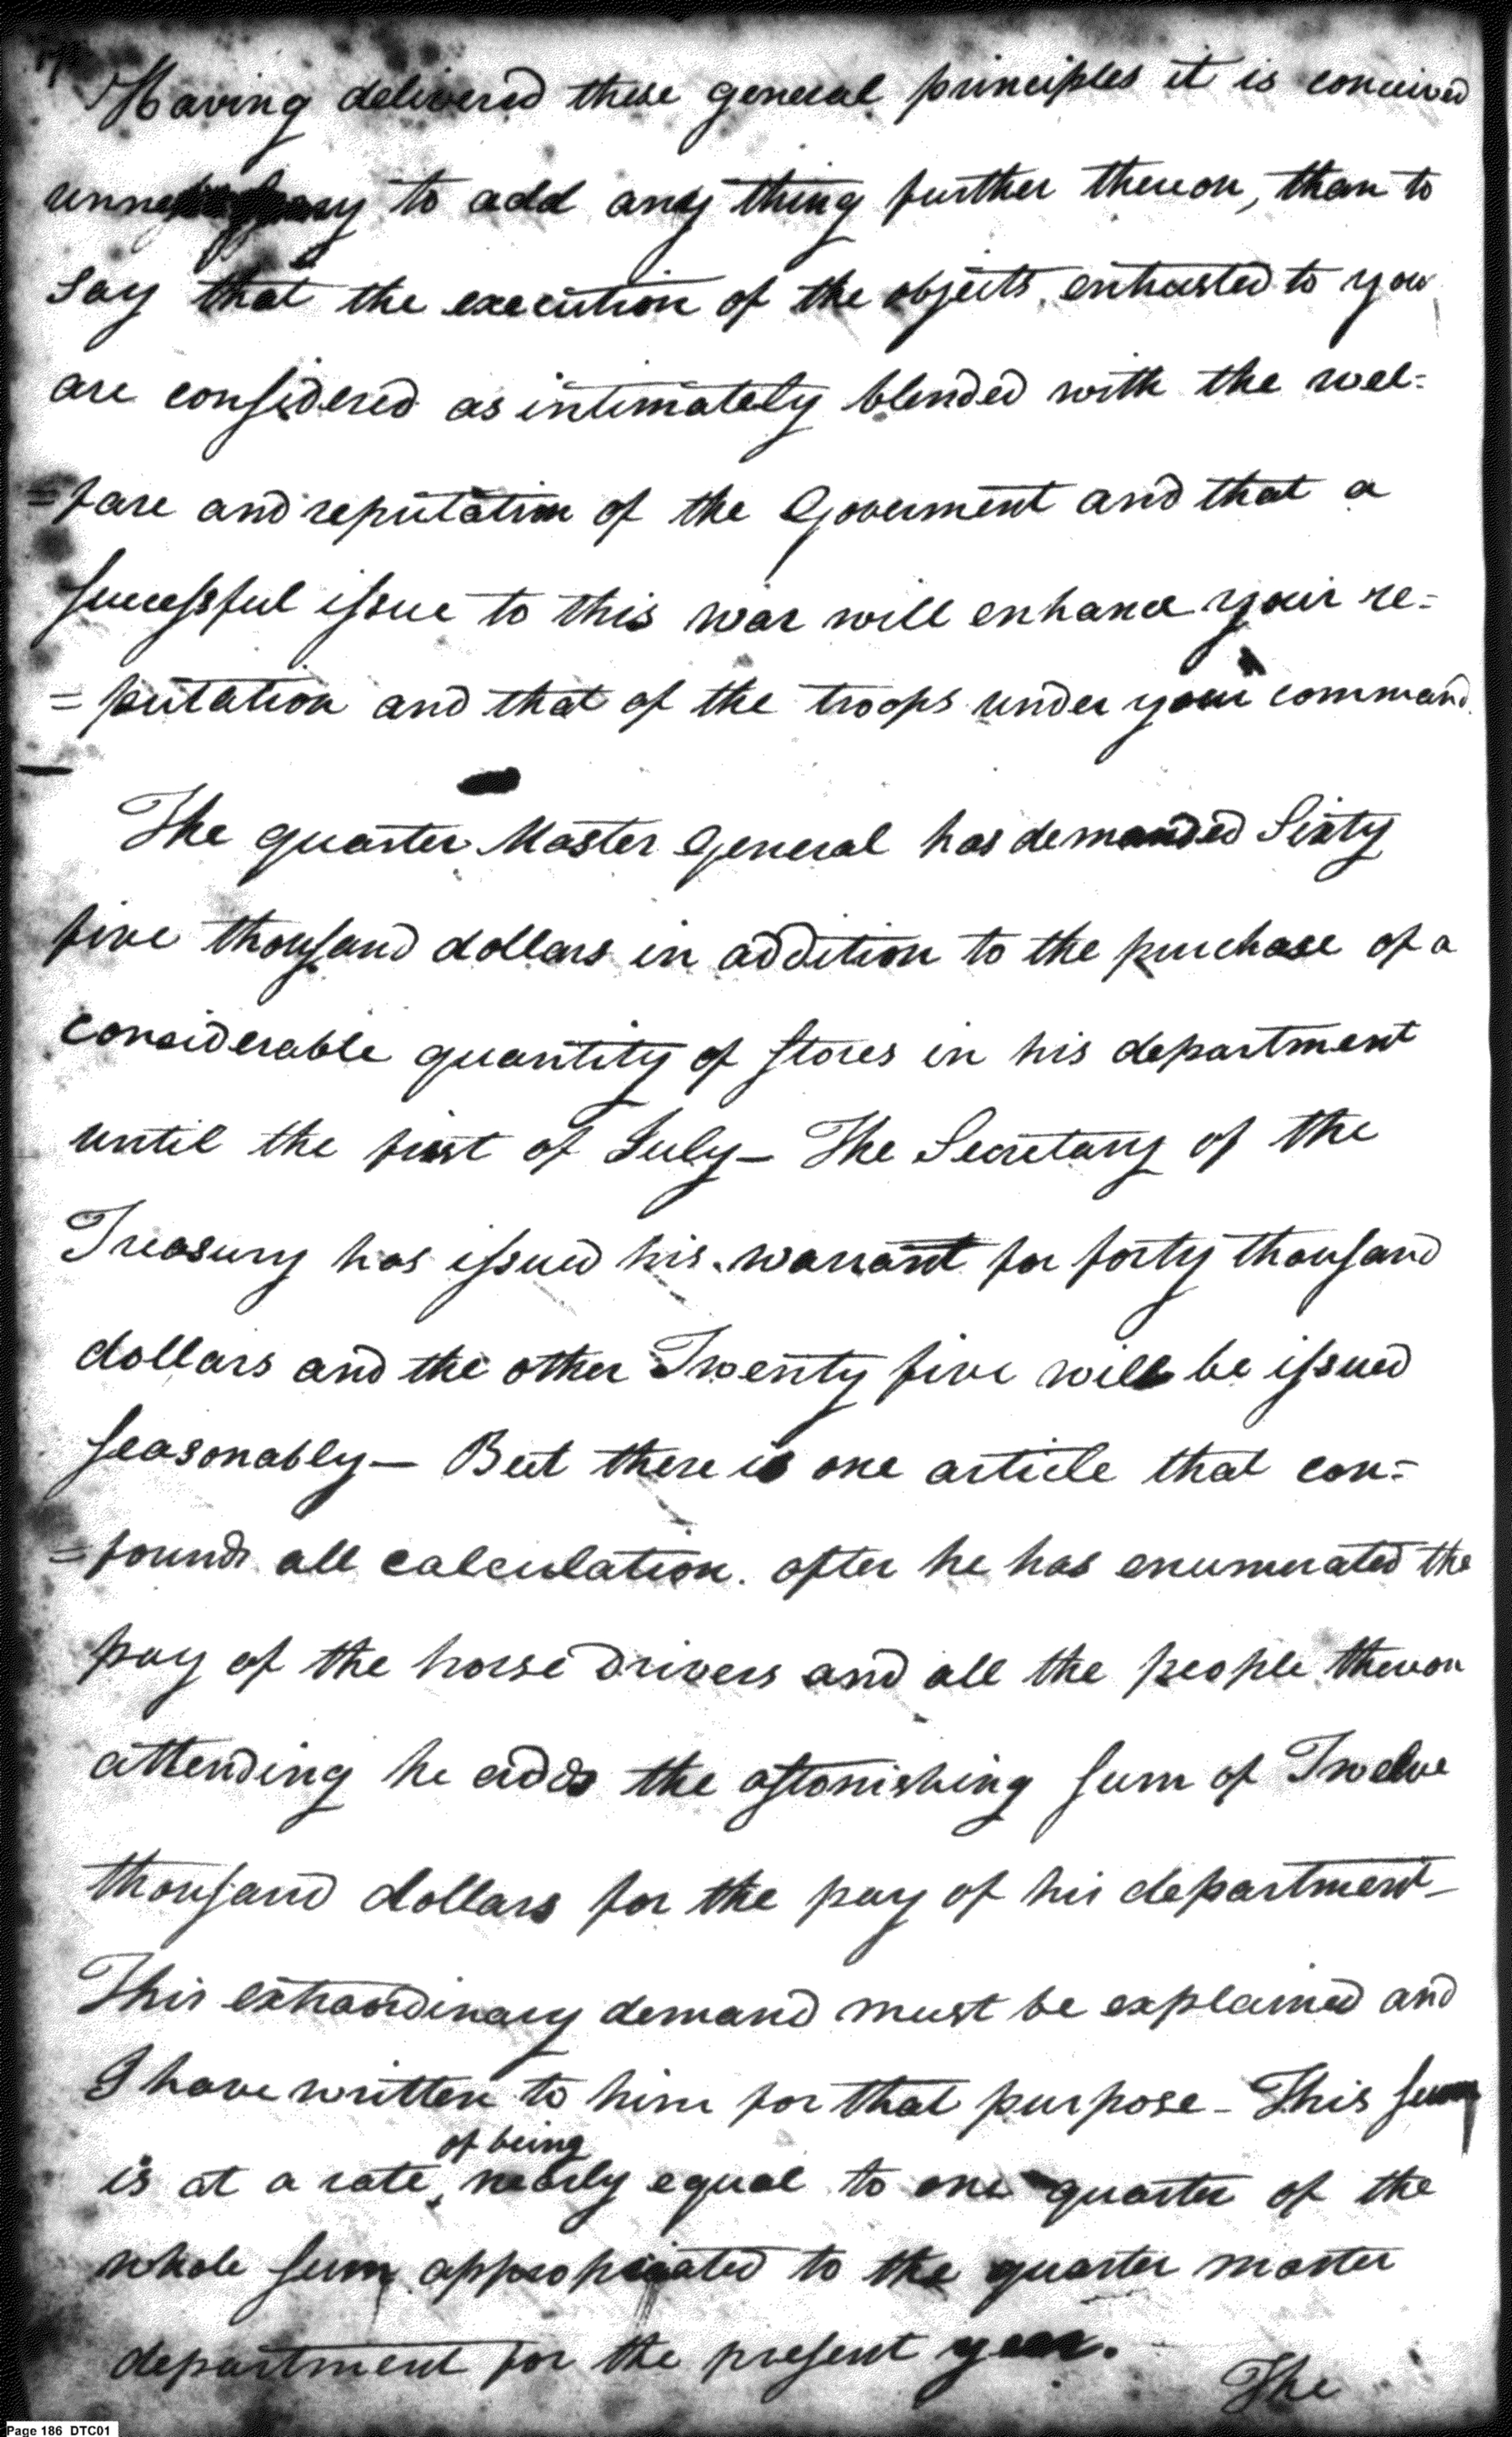 Having delivered these general principles it is conceived
unnecessary to add any thing further thereon, than to
say that the execution of the objects entrusted to you
are considered as intimately blended with the wel=
=fare and reputation of the Goverment and that a
successful issue to this war will enhance your re=
=putation and that of the troops under your command.
The quarter Master General has demanded Sixty
five thousand dollars in addition to the purchase of a
considerable quantity of stores in his department
until the first of July— The Secretary of the
Treasury has issued his warrant for forty thousand
dollars and the other Twenty five will be issued
seasonably— But there is one article that con=
=founds all calculation. after he has enumerated the
pay of the horse drivers and all the people thereon
attending he adds the astonishing sum of Twelve
thousand dollars for the pay of his department—
This extraordinary demand must be explained and
I have written to him for that purpose— This sum
of being
is at a rate, nearly equal to one quarter of the
whole sum appropriated to the quarter master
department for the present year.
The
Page 186 DTC01